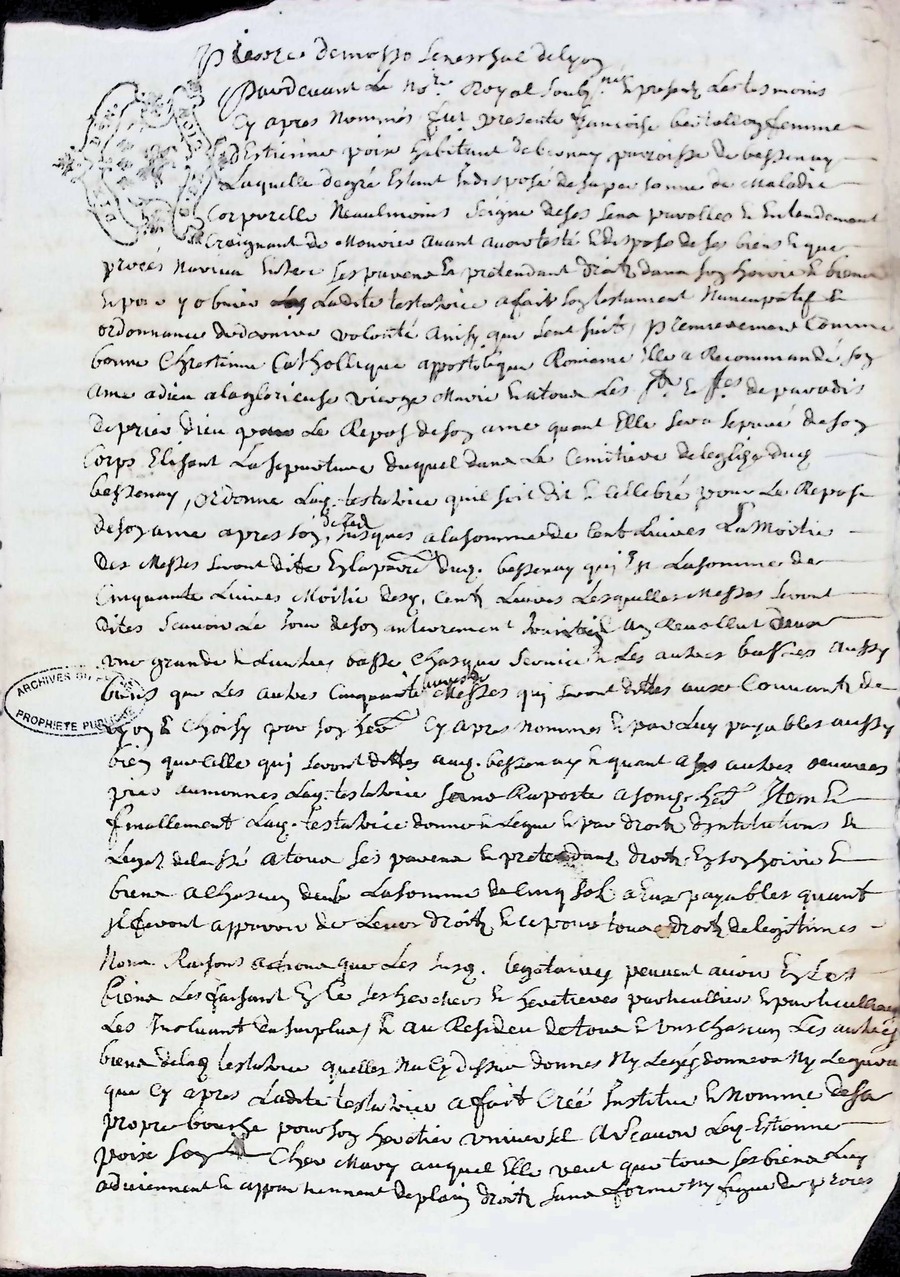 demosso seneschal de lyon
Pardevant Le No.re Royal soubz.né & presentz Les tesmoins
Cy apres Nommés fut presente françoise bertollon femme
d'Estienne poix habitant de bernay parroisse de bessenay
Laquelle de gré Estant Indisposé de sa personne de Maladie
Corporelle Neaulmoins seigne de ses sens parolles & Entendement
Craignant de Mourir avant avoir testé & disposé de ses biens & que
procés Nariva Entre ses parens & pretendant droitz dans son hoirie & biens
& pour y obvier Ladite testatrice a fait son testament Nuncupatif &
ordonnance de derniere volonté Ainsy que sent suit, premierement Comme
bonne Chrestienne Catholicque apostolique Romaine Elle a Recommandé son
ame a dieu a la glorieuse vierge Marie & a tous Les sts & stes de paradis
de prier dieu pour Le Repos de son ame quant Elle sera separée de son
Corps Elisant La sepurture duquel dans Le Cemitiere de leglize dud.
bessenay, ordonne Lad. testatrice quil soit dit & cellebré pour Le Repos
de son ame apres son deced Jusques a la somme de Cent Livres La Moitié
des Messes seront dite En la parre dud. bessenay quj La somme de
Cinquante Livres Moitié desd. Cent Livres Lesquelles Messes seront
dites Scavoir Le Jour de son anterrement au Revollut deux
une grande & Lautres basse Chasque service & Les autres basses aussy
que Les autres Cinquante livres Messes quj seront dittes aux Couvantz de
Lyon & Choisy par son her Cy apres Nommés & par Luy payables aussy
bien que celle quj seront dittes aud. bessenay & quant a ses autres oeuvres
pies aumonnes Lad. testatrice sans Raporte a sond. her Item &
finallement Lad. testatrice donne & Legue & par droitz dinstitutions &
Legat delaissé a tous ses parens & pretendant droitz En son hoirie &
biens a Chascun deux La somme de Cinq sols a Eux payables quant
Jl feront apparoir de Leurs droitz & ce pour tous droitz de legitimes
Noms Raisons actions que Les susd. legataires peuvent avoir En ses
biens Les faisant En ce ses heritiers & heretieres particullier & particullieres
Les Incluant du surplus, & au Residu de tous & uns Chascun Les autres
biens delad testatrice quelles Na Cy dessus donnés Ny Legués donnera Ny Leguera
que Cy apres Ladite testatrice a fait Créé Institue & Nomme de sa
propre bouche pour son heretier universel A Scavoir Led. Estienne
poix son Cher Mary auquel Elle veut que tous ses biens Luy
adviennent & appartiennent de plain droitz sans forme Ny figure de procés
ARCHIVES DU
PROPRIETE PUBLIQUE